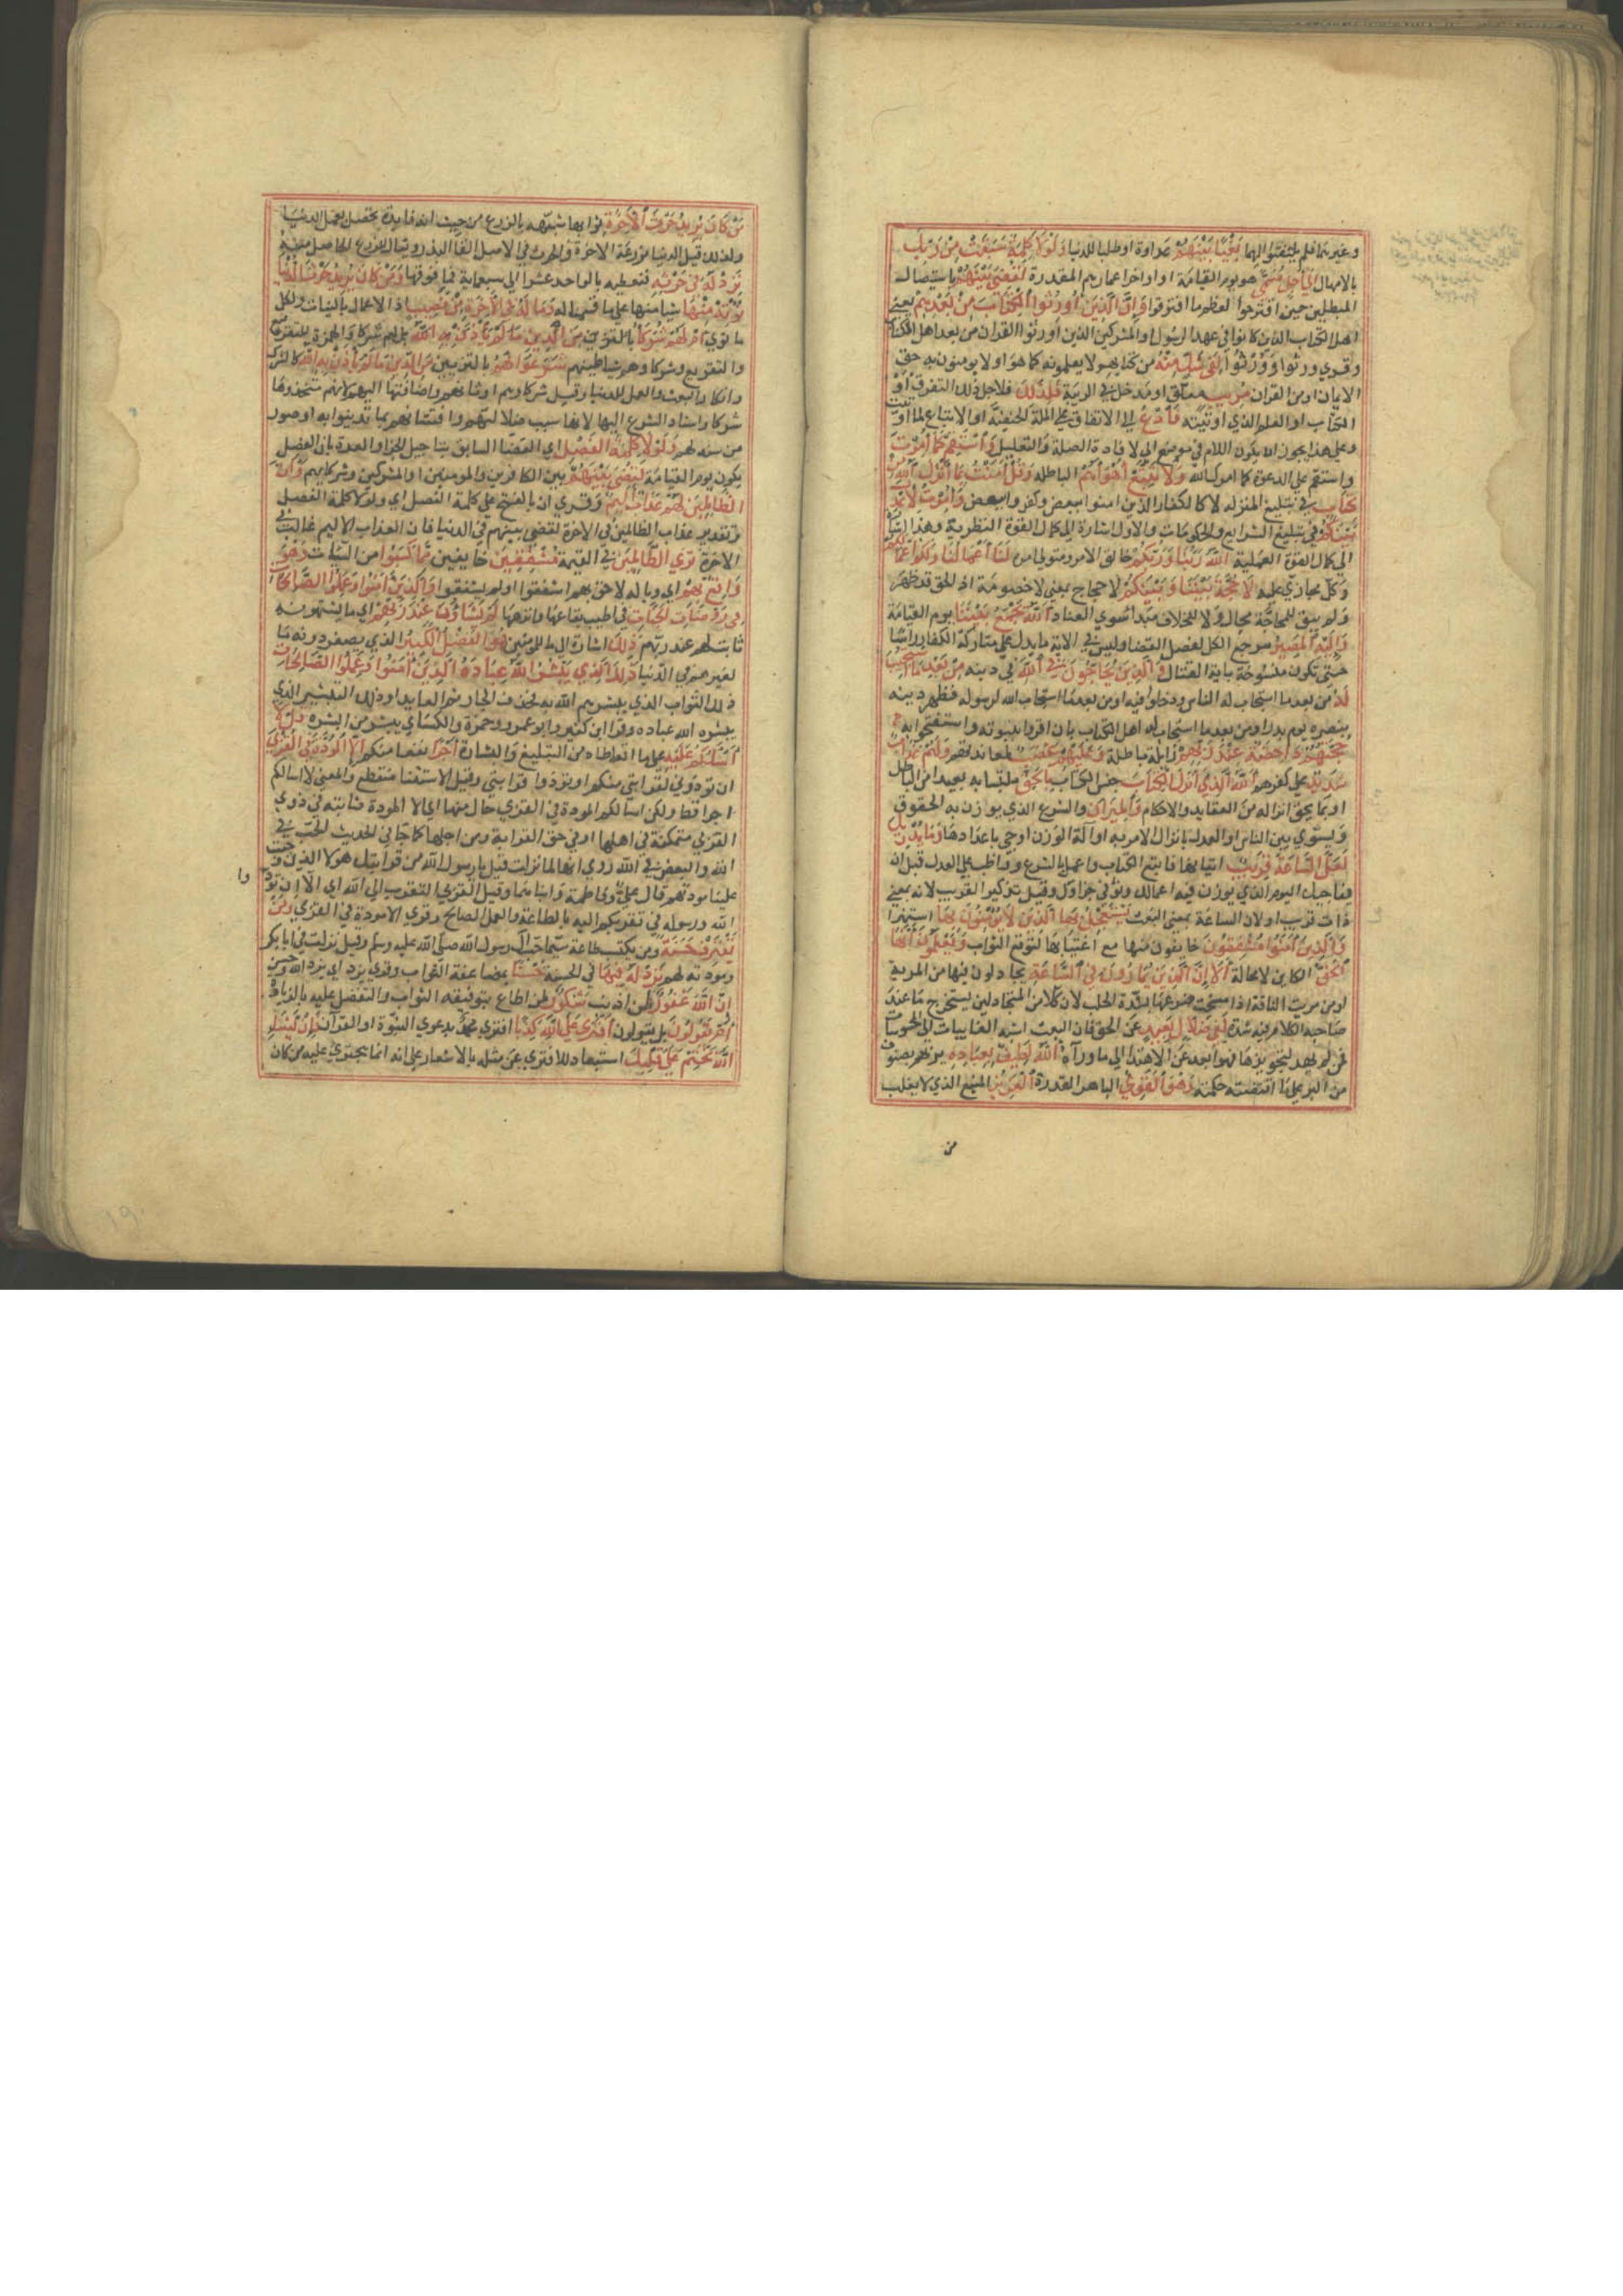 وغيرهما فلم يلتفتوا اليها بَغْيًا بَيْنَهُمْ عداوة او طلبا للدنيا وَلَوْلَا كَلِمَةٌ سَبَقَتْ مِنْ رَبِّكَ
بالامهال إِلَى أَجَلٍ مُسَمًّى هو يوم القيامة او اواخر اعمارهم المقدرة لَقُضِيَ بَيْنَهُمْ باستيصال
المبطلين حين افترقوا لعظم ما اقترفوا وَإِنَّ الَّذِينَ أُورِثُوا الْكِتَابَ مِنْ بَعْدِهِمْ يعني
اهل الكتاب الذين كانوا في عهد الرسول او المشركين الذين اورثوا القران من بعد اهل الكتاب
وقري ورثوا وورثوا لَفِي شَكٍّ مِنْهُ من كتابهم لا يعلمونه كما هو او لا يومنون به حق
الايمان او من القران مُرِيبٍ مقلق او مدخل في الريبة فَلِذَلِكَ فلاجل ذلك التفرق او
الكتاب او العلم الذي اوتيته فَادْعُ الى الاتفاق على الملة الحنيفية او الاتباع لما اوتيت
وعلى هذا يجوز ان يكون اللام في موضع الى لافادة الصلة والتعليل وَاسْتَقِمْ كَمَا أُمِرْتَ
واستقم على الدعوة كما امرك الله وَلَا تَتَّبِعْ أَهْوَاءَهُمْ الباطلة وَقُلْ آمَنْتُ بِمَا أَنْزَلَ اللَّهُ مِنْ
كِتَابٍ يعني جميع الكتب المنزلة لا كالكفار الذين امنوا ببعض وكفروا ببعض وَأُمِرْتُ لِأَعْدِلَ
بَيْنَكُمُ في تبليغ الشرايع والحكومات والاول اشارة الى كمال القوة النظرية وهذا اشارة
الى كمال القوة العملية اللَّهُ رَبُّنَا وَرَبُّكُمْ خالق الكل ومتولي امره لَنَا أَعْمَالُنَا وَلَكُمْ أَعْمَالُكُمْ
وكل مجازي بعمله لَا حُجَّةَ بَيْنَنَا وَبَيْنَكُمُ لا حجاج بمعنى لا خصومة اذ الحق قد ظهر
ولم يبق للمحاجة مجال ولا للخلاف مبدا سوي العناد اللَّهُ يَجْمَعُ بَيْنَنَا يوم القيامة
وَإِلَيْهِ الْمَصِيرُ مرجع الكل لفصل القضا وليس في الاية ما يدل على متاركة الكفار راسا
حتى تكون منسوخة باية القتال وَالَّذِينَ يُحَاجُّونَ فِي اللَّهِ في دينه مِنْ بَعْدِ مَا اسْتُجِيبَ
لَهُ من بعد ما استجاب له الناس ودخلوا فيه او من بعد ما استجاب الله لرسوله فظهر دينه
بنصره يوم بدر او من بعد ما استجاب له اهل الكتاب بان اقروا بنبوته واستفتحوا به
حُجَّتُهُمْ دَاحِضَةٌ عِنْدَ رَبِّهِمْ زايلة باطلة وَعَلَيْهِمْ غَضَبٌ لمعاندتهم وَلَهُمْ عَذَابٌ
شَدِيدٌ على كفرهم اللَّهُ الَّذِي أَنْزَلَ الْكِتَابَ جنس الكتاب بِالْحَقِّ ملتبسا به بعيدا من الباطل
او بما يحق انزاله من العقايد والاحكام وَالْمِيزَانَ والشرع الذي يوزن به الحقوق
ويسوي بين الناس او العدل بانزال الامر به او الة الوزن اوحي باعدادها وَمَا يُدْرِيكَ
لَعَلَّ السَّاعَةَ قَرِيبٌ اتيانها فاتبع الكتاب واعمل بالشرع وواظب على العدل قبل ان
يفاجيك اليوم الذي يوزن فيه اعمالك ويوفى جزاوك وقيل تذكير القريب لانه بمعنى
ذات قرب او لان الساعة بمعنى البعث يَسْتَعْجِلُ بِهَا الَّذِينَ لَا يُؤْمِنُونَ بِهَا استهزا
وَالَّذِينَ آمَنُوا مُشْفِقُونَ خايفون منها مع اغتنا بها لتوقع الثواب وَيَعْلَمُونَ أَنَّهَا
الْحَقُّ الكاين لا محالة أَلَا إِنَّ الَّذِينَ يُمَارُونَ فِي السَّاعَةِ يجادلون فيها من المرية
او من مريت الناقة اذا مسحت ضرعها بشدة للحلب لان كلا من المتجادلين يستخرج ما عند
صاحبه بكلام فيه شدة لَفِي ضَلَالٍ بَعِيدٍ عن الحق فان البعث اشبه الغايبات الى المحسوسات
فمن لم يهتد لتجويزها فهو ابعد عن الاهتدا الى ما وراه اللَّهُ لَطِيفٌ بِعِبَادِهِ يربهم بصنوف
من البر على ما اقتضته حكمته وَهُوَ الْقَوِيُّ الباهر القدرة الْعَزِيزُ المنيع الذي لا يغلب
من
مَنْ كَانَ يُرِيدُ حَرْثَ الْآخِرَةِ ثوابها شبهه بالزرع من حيث انه فايدة تحصل بعمل الدنيا
ولذلك قيل الدنيا مزرعة الاخرة والحرث في الاصل القا البذر ويقال للزرع الحاصل منه
نَزِدْ لَهُ فِي حَرْثِهِ فنعطيه بالواحد عشرا الى سبعماية فما فوقها وَمَنْ كَانَ يُرِيدُ حَرْثَ الدُّنْيَا
نُؤْتِهِ مِنْهَا شيا منها على ما قسمنا له وَمَا لَهُ فِي الْآخِرَةِ مِنْ نَصِيبٍ اذ الاعمال بالنيات ولكل
ما نوي أَمْ لَهُمْ شُرَكَاءُ بل الهم شركا والهمزة للتقرير
والتقريع وشركاوهم شياطينهم شَرَعُوا لَهُمْ بالتزيين مِنَ الدِّينِ مَا لَمْ يَأْذَنْ بِهِ اللَّهُ كالشرك
وانكار البعث والعمل للدنيا وقيل شركاوهم اوثانهم واضافتها اليهم لانهم متخذوها
شركا واسناد الشرع اليها لانها سبب ضلالتهم وافتتانهم بما تدينوا به او صور
من سنه لهم وَلَوْلَا كَلِمَةُ الْفَصْلِ اي القضا السابق بتاجيل الجزا او العدة بان الفصل
يكون يوم القيامة لَقُضِيَ بَيْنَهُمْ بين الكافرين والمومنين او المشركين وشركايهم وَإِنَّ
الظَّالِمِينَ لَهُمْ عَذَابٌ أَلِيمٌ وقري ان بالفتح على كلمة الفصل اي ولولا كلمة الفصل
وتقدير عذاب الظالمين في الاخرة لقضي بينهم في الدنيا فان العذاب الاليم غالب في
الاخرة تَرَى الظَّالِمِينَ في القيمة مُشْفِقِينَ خايفين مِمَّا كَسَبُوا من السيات وَهُوَ
وَاقِعٌ بِهِمْ اي وباله لاحق بهم اشفقوا او لم يشفقوا وَالَّذِينَ آمَنُوا وَعَمِلُوا الصَّالِحَاتِ
فِي رَوْضَاتِ الْجَنَّاتِ في اطيب بقاعها وانزهها لَهُمْ مَا يَشَاءُونَ عِنْدَ رَبِّهِمْ اي ما يشتهونه
ثابت لهم عند ربهم ذَلِكَ اشارة الى ما للمومنين هُوَ الْفَضْلُ الْكَبِيرُ الذي يصغر دونه ما
لغيرهم في الدنيا ذَلِكَ الَّذِي يُبَشِّرُ اللَّهُ عِبَادَهُ الَّذِينَ آمَنُوا وَعَمِلُوا الصَّالِحَاتِ
ذلك الثواب الذي يبشرهم الله به فحذف الجار ثم العايد او ذلك التبشير الذي
يبشره الله عباده وقرا ابن كثير وابو عمرو وحمزة والكساي يبشر من البشره قُلْ لَا
أَسْأَلُكُمْ عَلَيْهِ على ما اتعاطاه من التبليغ والبشارة أَجْرًا نفعا منكم إِلَّا الْمَوَدَّةَ فِي الْقُرْبَى
ان تودوني لقرابتي منكم او تودوا قرابتي وقيل الاستثنا منقطع والمعنى لا اسالكم
اجرا قط ولكن اسالكم المودة وفي القربي حال منها اي الا المودة ثابتة في ذوي
القربي متمكنة في اهلها او في حق القرابة ومن اجلها كما جا في الحديث الحب في
الله والبغض في الله روي انها لما نزلت قيل يا رسول الله من قرابتك هولا الذين وجبت
علينا مودتهم قال علي وفاطمة وابناهما وقيل القربي التقرب الى الله اي الا ان تودوا
وا
الله ورسوله في تقربكم اليه بالطاعة والعمل الصالح وقري الا مودة في القربي وَمَنْ
يَقْتَرِفْ حَسَنَةً ومن يكتسب طاعة سيما حب ال رسول الله صلى الله عليه وسلم وقيل نزلت في ابي بكر
ومودته لهم نَزِدْ لَهُ فِيهَا في الحسنة حُسْنًا بمضاعفة الثواب وقري يزد اي يزد الله وحسنى
إِنَّ اللَّهَ غَفُورٌ لمن اذنب شَكُورٌ لمن اطاع بتوفية الثواب والتفضل عليه بالزيادة
أَمْ يَقُولُونَ بل يقولون افْتَرَى عَلَى اللَّهِ كَذِبًا افترى محمد بدعوي النبوة او القرآن فَإِنْ يَشَإِ
اللَّهُ يَخْتِمْ عَلَى قَلْبِكَ استبعاد للافترى عن مثله بالاشعار على انه انما يجتري عليه من كان
19